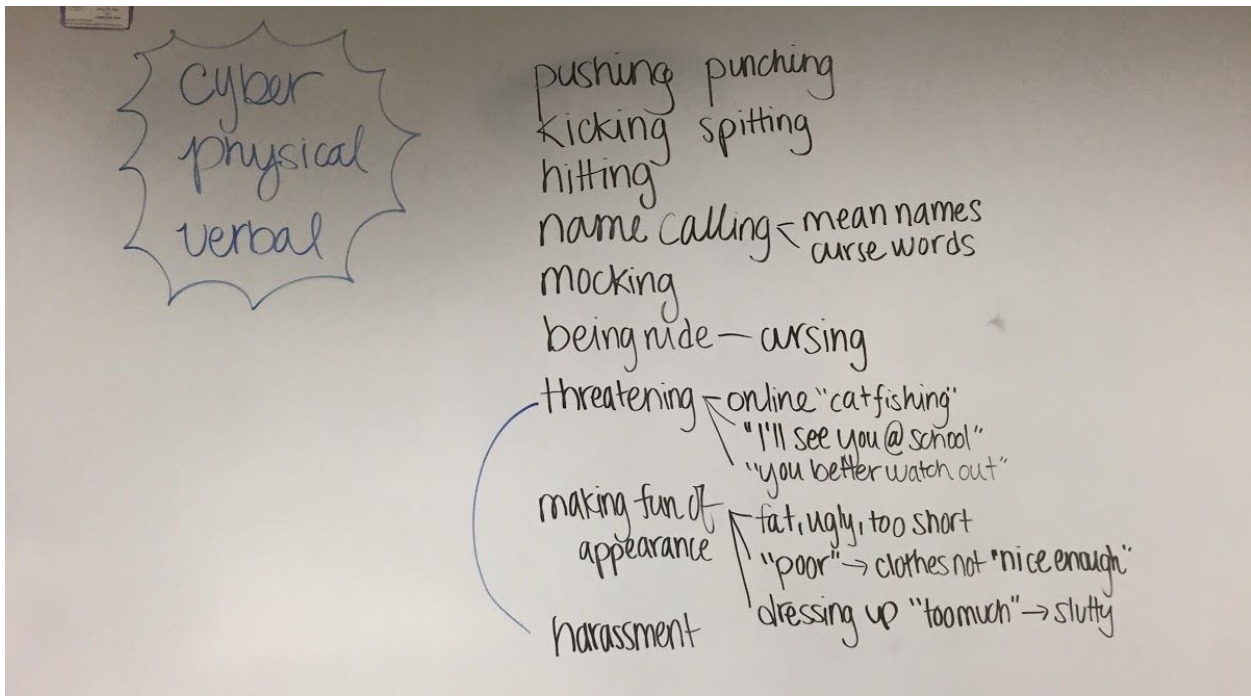 cyber
physical
verbal
pushing punching
kicking spitting
hitting
name calling - mean names
curse words
mocking
being rude - cursing
threatening - online "catfishing"
"I'll see you @ school"
"you better watch out"
making fun of
appearance
fat, ugly, too short
"poor" → clothes not "nice enough"
dressing up "too much" → slutty
harassment